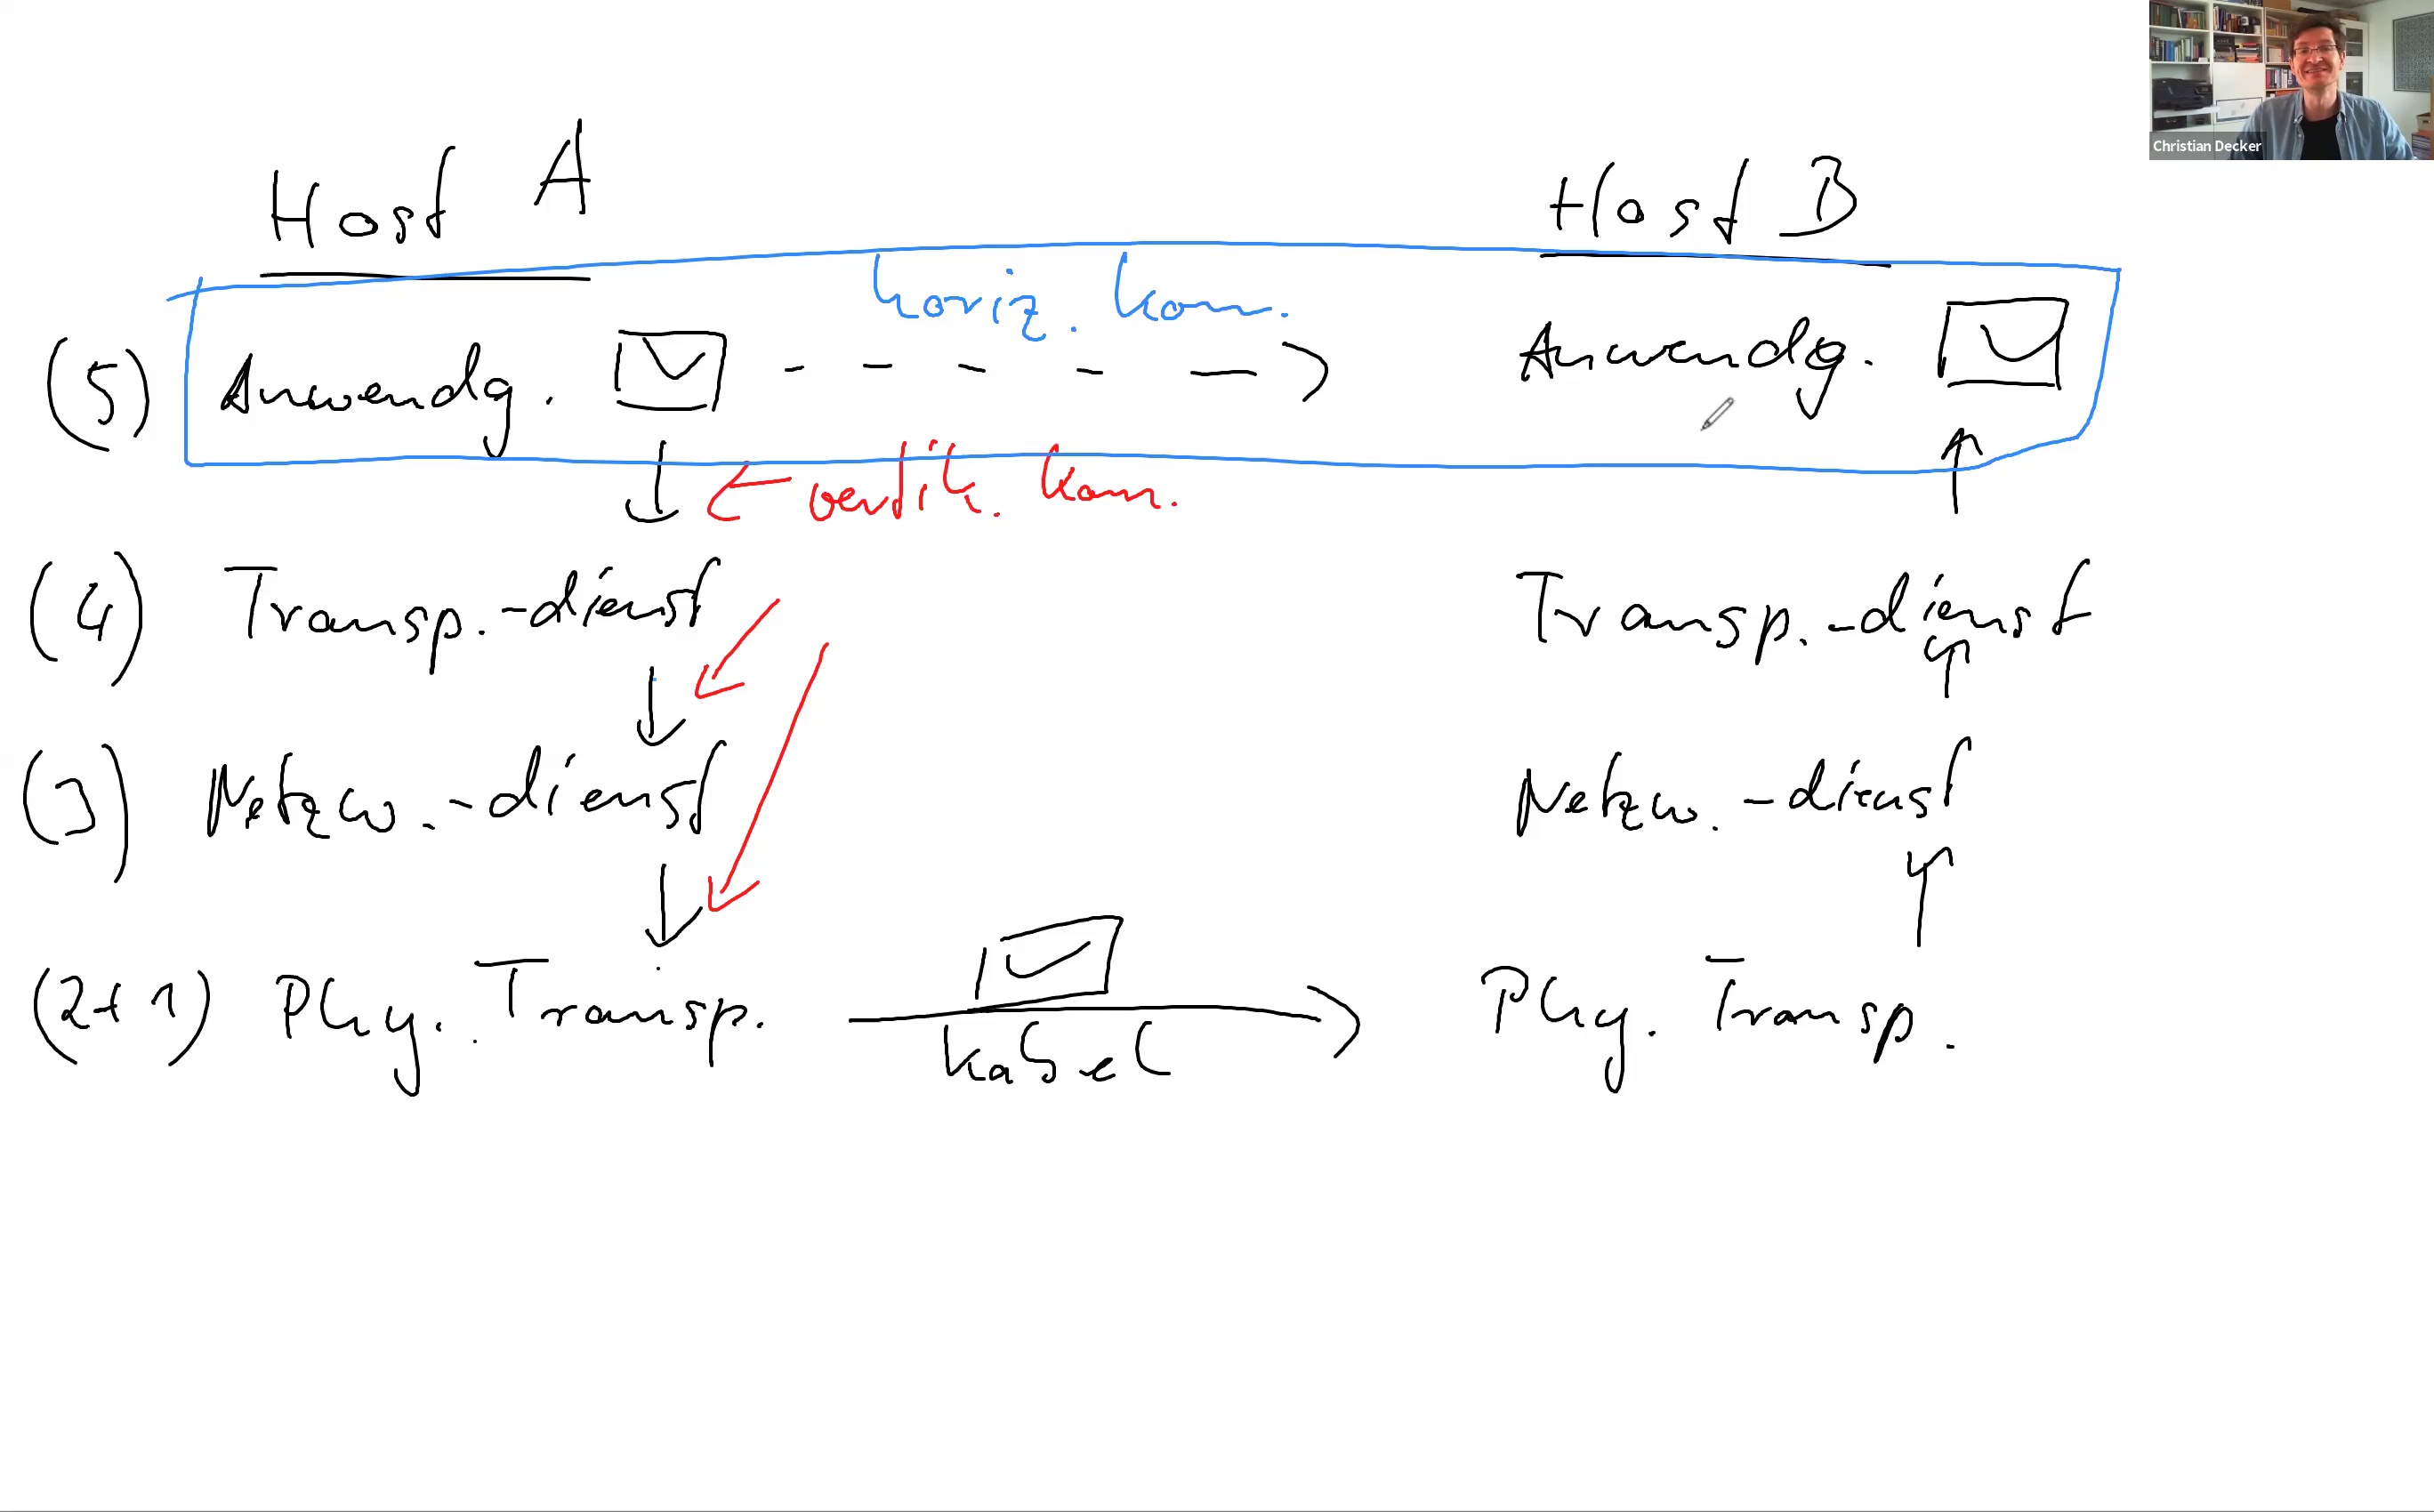 Christian Decker
Host A
Host B
horiz. kom.
(5) Anwendg.
Anwendg.
vertik. kom.
(4) Transp.-dienst
Transp.-dienst
(3) Netzw.-dienst
Netzw.-dienst
(2+1) Phy. Transp.
Kabel
Phy. Transp.